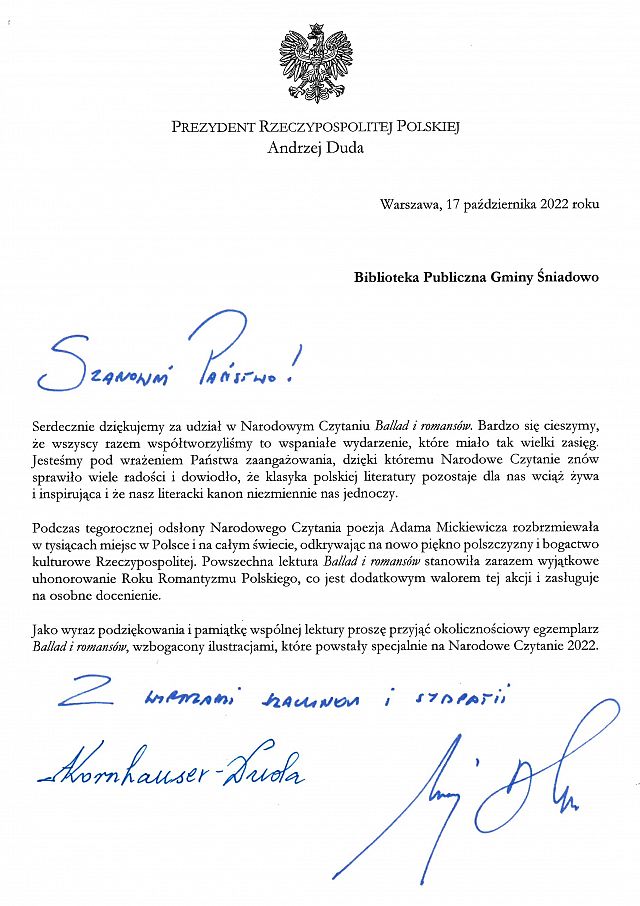 PREZYDENT RZECZYPOSPOLITEJ POLSKIEJ
Andrzej Duda
Warszawa, 17 października 2022 roku
Biblioteka Publiczna Gminy Śniadowo
Szanowni Państwo!
Serdecznie dziękujemy za udział w Narodowym Czytaniu Ballad i romansów. Bardzo się cieszymy,
że wszyscy razem współtworzyliśmy to wspaniałe wydarzenie, które miało tak wielki zasięg.
Jesteśmy pod wrażeniem Państwa zaangażowania, dzięki któremu Narodowe Czytanie znów
sprawiło wiele radości i dowiodło, że klasyka polskiej literatury pozostaje dla nas wciąż żywa
i inspirująca i że nasz literacki kanon niezmiennie nas jednoczy.
Podczas tegorocznej odsłony Narodowego Czytania poezja Adama Mickiewicza rozbrzmiewała
w tysiącach miejsc w Polsce i na całym świecie, odkrywając na nowo piękno polszczyzny i bogactwo
kulturowe Rzeczypospolitej. Powszechna lektura Ballad i romansów stanowiła zarazem wyjątkowe
uhonorowanie Roku Romantyzmu Polskiego, co jest dodatkowym walorem tej akcji i zasługuje
na osobne docenienie.
Jako wyraz podziękowania i pamiątkę wspólnej lektury proszę przyjąć okolicznościowy egzemplarz
Ballad i romansów, wzbogacony ilustracjami, które powstały specjalnie na Narodowe Czytanie 2022.
Z wyrazami szacunku i sympatii
Kornhauser-Duda